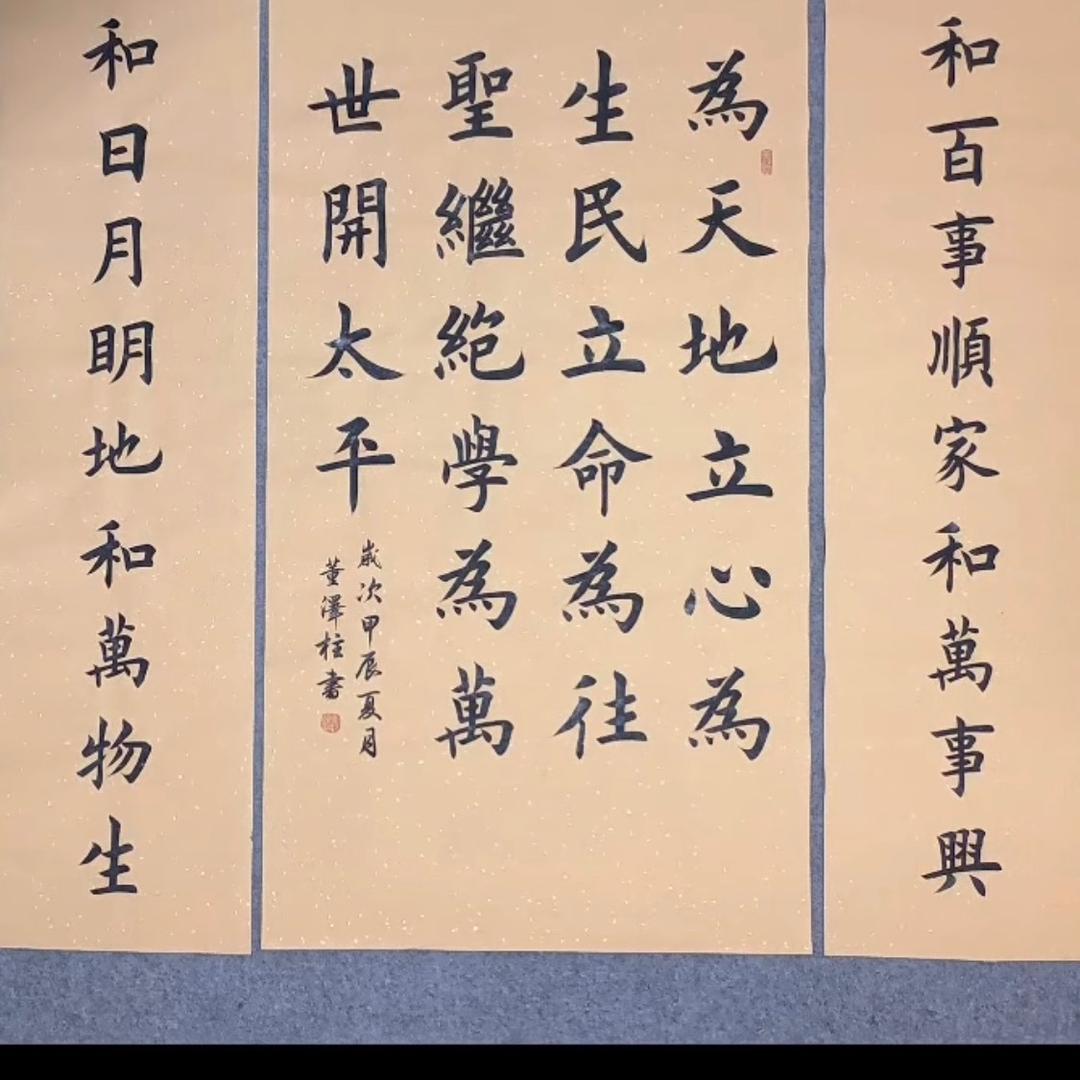 和百事順家和萬事興
為天地立心為
生民立命為往
聖繼絶學為萬
世開太平
歲次甲辰夏月
董澤柱書
和日月明地和萬物生